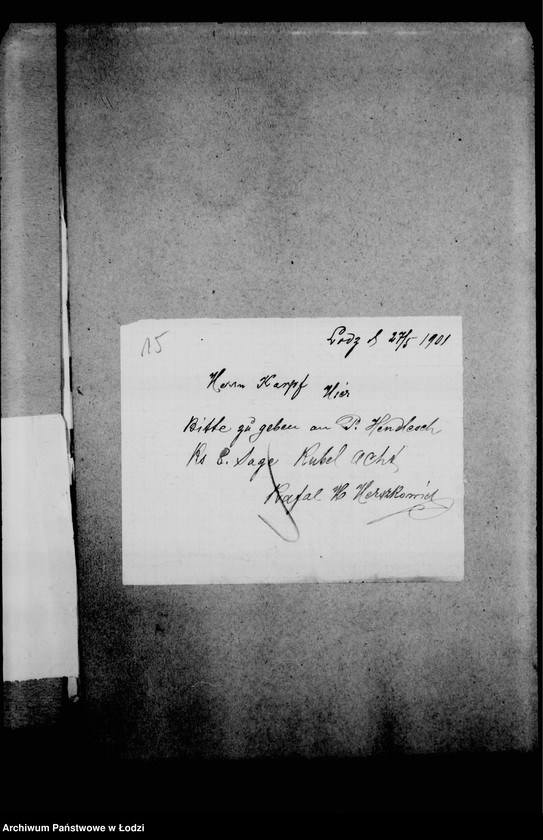 15
Lodz d 27/5 1901
Herrn Karpf Hier
Bitte zu geben an P. Hendlesch
Rs 8. Sage Rubel Acht
Rafal H Herszkowicz
Archiwum Państwowe w Łodzi